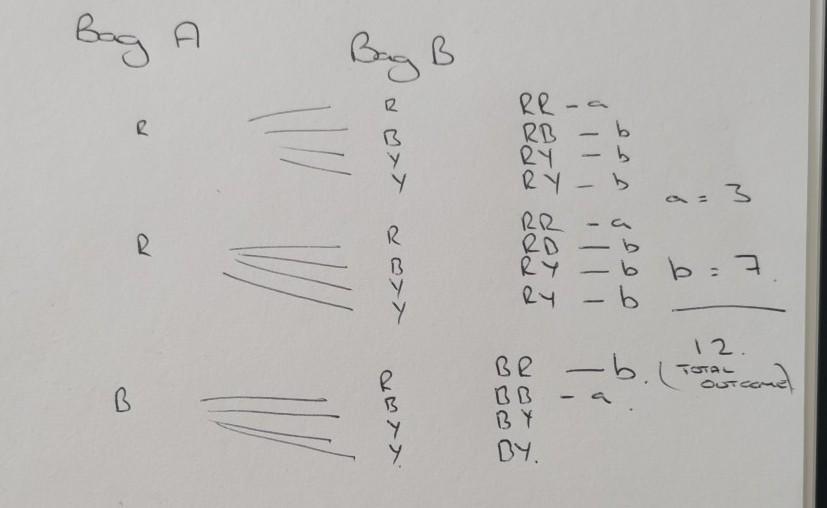 Bag A
Bag B
R
R RR - a
B RB - b
Y RY - b
Y RY - b
a = 3
R
R RR - a
B RB - b
Y RY - b
Y RY - b
b = 7.
12.
(TOTAL OUTCOME)
B
R BR - b.
B BB - a.
Y BY
Y. BY.